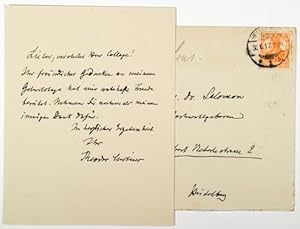 Lieber, verehrter Herr College!
Ihr freundliches Gedenken an meinem
Geburtstage hat mir wahrhafte Freude
bereitet. Nehmen Sie nochmals meinen
innigen Dank dafür.
In herzlicher Ergebenheit
Ihr
Theodor
Dr. Salomon
2
Heidelberg